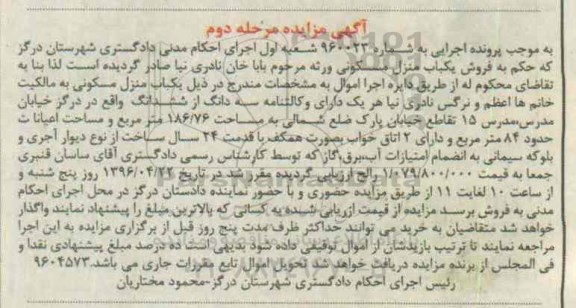 آگهی مزایده مرحله دوم
به موجب پرونده اجرایی به شماره ۹۶۰۰۲۳ شعبه اول اجرای احکام مدنی دادگستری شهرستان درگز
که حکم به فروش یکباب منزل مسکونی ورثه مرحوم بابا خان نادری نیا صادر گردیده است لذا بنا به
تقاضای محکوم له از طریق دایره اجرا اموال به مشخصات مندرج در ذیل یکباب منزل مسکونی به مالکیت
خانم ها اعظم و نرگس نادری نیا هر یک دارای وکالتنامه سه دانگ از ششدانگ واقع در درگز خیابان
مدرس،مدرس ۱۵ تقاطع خیابان پارک ضلع شمالی به مساحت ۱۸۶/۷۶ متر مربع و مساحت اعیانات
حدود ۸۴ متر مربع و دارای ۲ اتاق خواب بصورت همکف با قدمت ۲۴ سال ساخت از نوع دیوار آجری و
بلوکه سیمانی به انضمام امتیازات آب،برق،گاز که توسط کارشناس رسمی دادگستری آقای ساسان قنبری
جمعا به قیمت ۱/۰۷۹/۸۰۰/۰۰۰ رالح ارزیابی گردیده مقرر شد در تاریخ ۱۳۹۶/۰۴/۲۲ روز پنج شنبه و
از ساعت ۱۰ لغایت ۱۱ از طریق مزایده حضوری و با حضور نماینده دادستان درگز در محل اجرای احکام
مدنی به فروش برسد مزایده از قیمت ارزیابی شده به کسانی که بالاترین مبلغ را پیشنهاد نمایند واگذار
خواهد شد متقاضیان به خرید می توانند حداکثر ظرف مدت پنج روز قبل از برگزاری مزایده به این اجرا
مراجعه نمایند تا ترتیب بازدیدشان از اموال توقیفی داده شود بدیهی است ده درصد مبلغ پیشنهادی نقدا و
فی المجلس از برنده مزایده دریافت خواهد شد تحویل اموال تابع مقررات جاری می باشد.۹۶۰۴۵۷۳
رئیس اجرای احکام دادگستری شهرستان درگز-محمود مختاریان